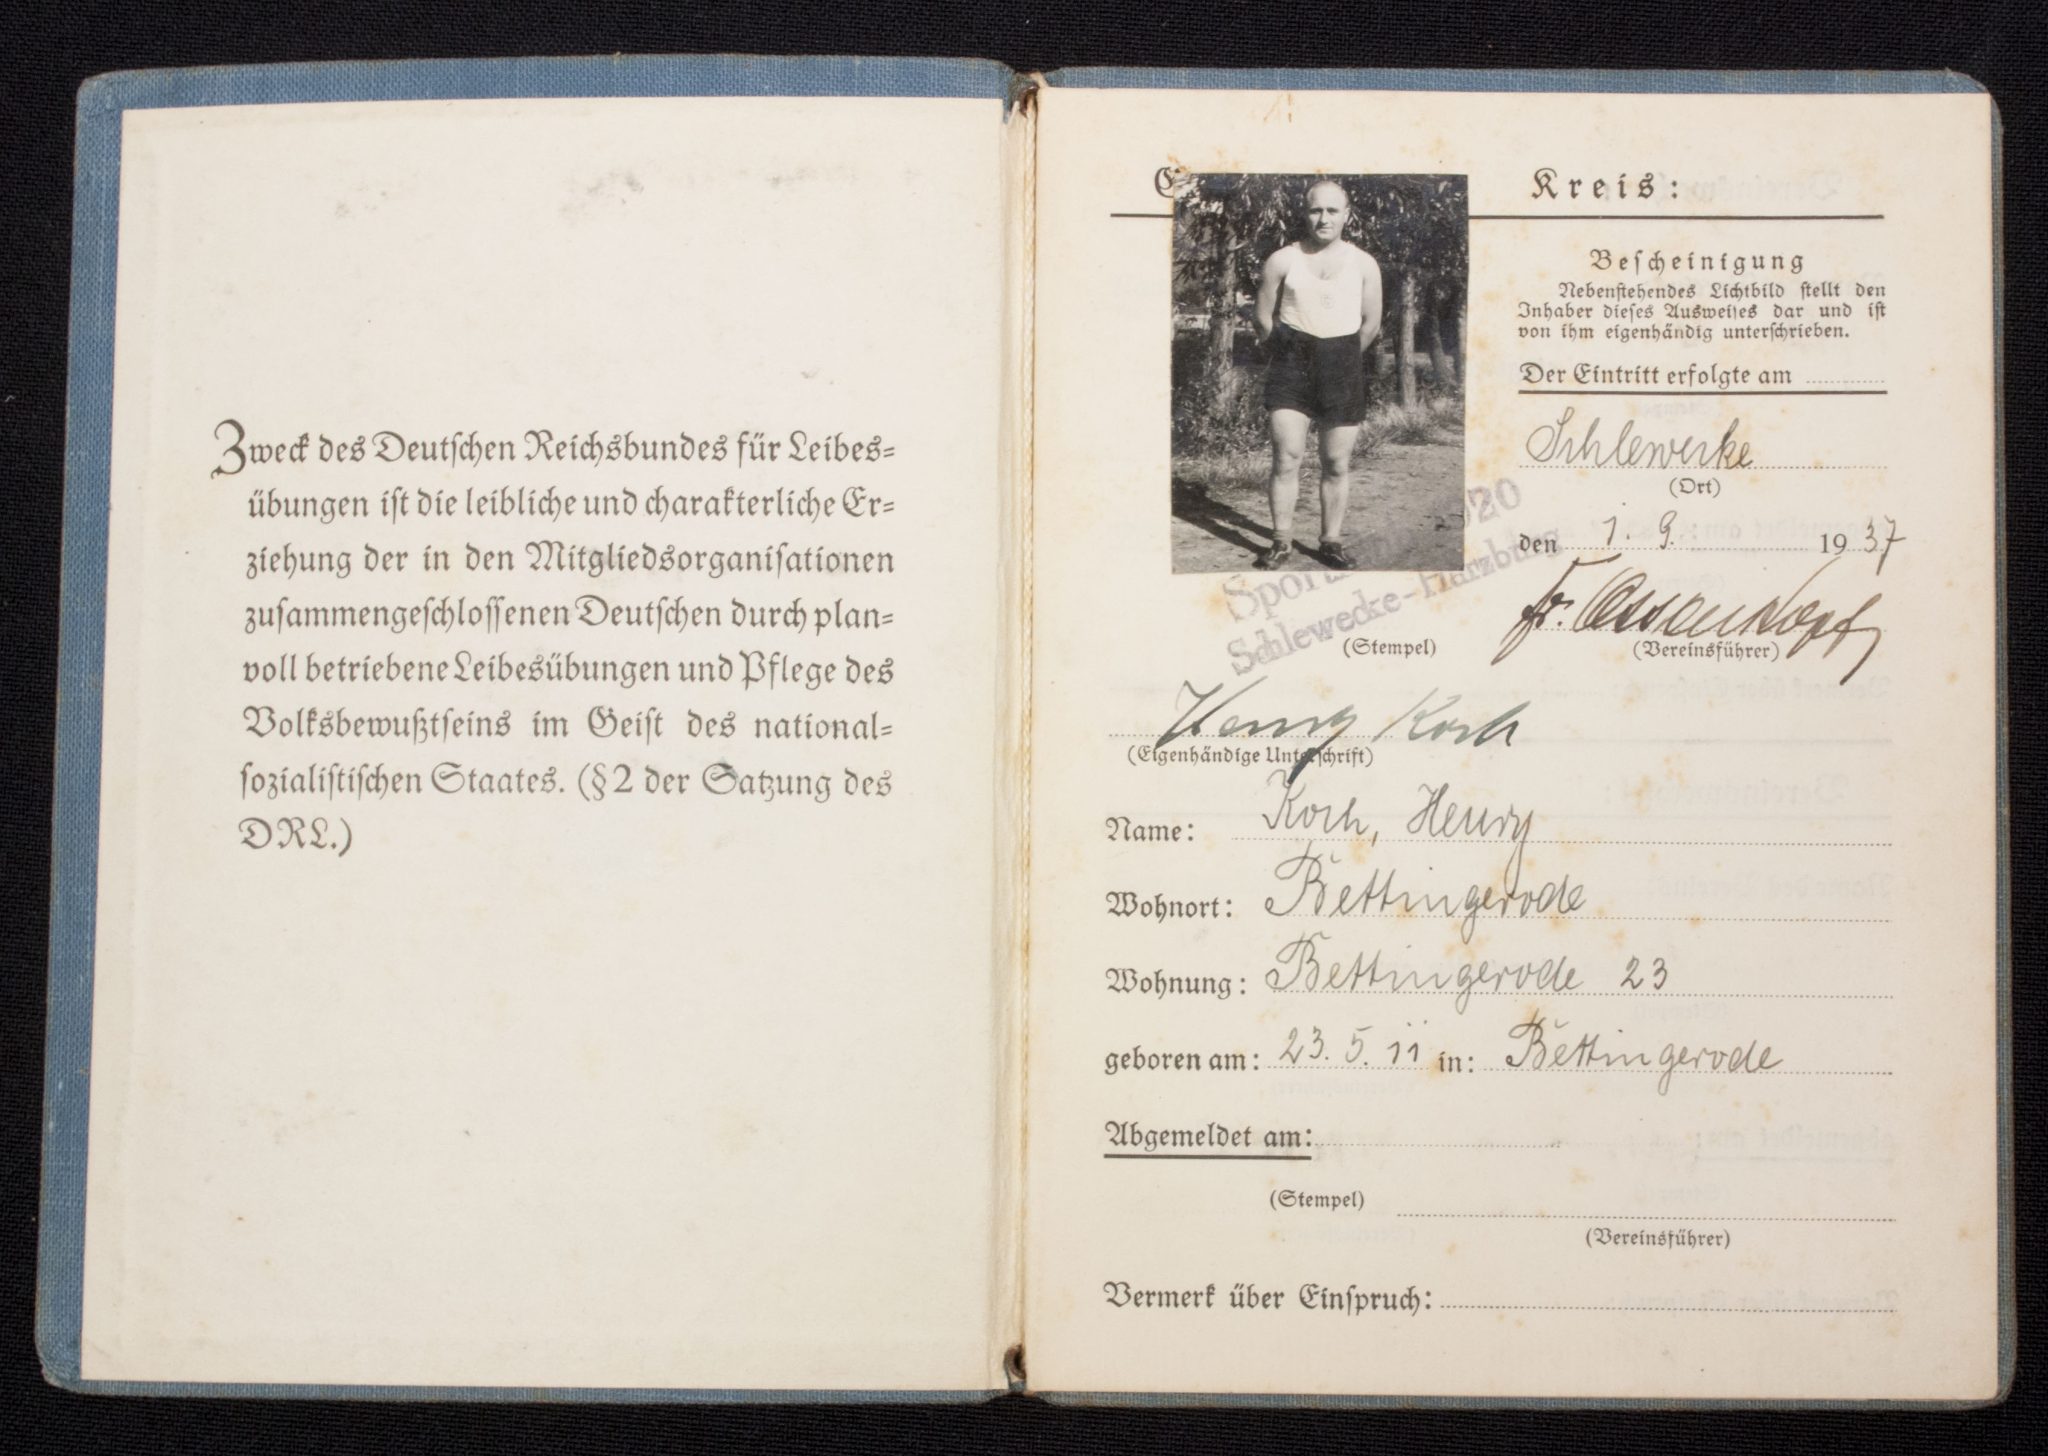 Zweck des Deutschen Reichsbundes für Leibes-
übungen ist die leibliche und charakterliche Er-
ziehung der in den Mitgliedsorganisationen
zusammengeschlossenen Deutschen durch plan-
voll betriebene Leibesübungen und Pflege des
Volksbewußtseins im Geist des national-
sozialistischen Staates. (§ 2 der Satzung des
DRL.)
Kreis:
Bescheinigung
Nebenstehendes Lichtbild stellt den
Inhaber dieses Ausweises dar und ist
von ihm eigenhändig unterschrieben.
Der Eintritt erfolgte am
Schlewecke
(Ort)
den 1. 9. 1937
Schlewecke-Harzburg
(Stempel)
(Vereinsführer)
Henry Koch
(Eigenhändige Unterschrift)
Name: Koch, Henry
Wohnort: Bettingerode
Wohnung: Bettingerode 23
geboren am: 23. 5. 11 in: Bettingerode
Abgemeldet am:
(Stempel)
(Vereinsführer)
Vermerk über Einspruch: